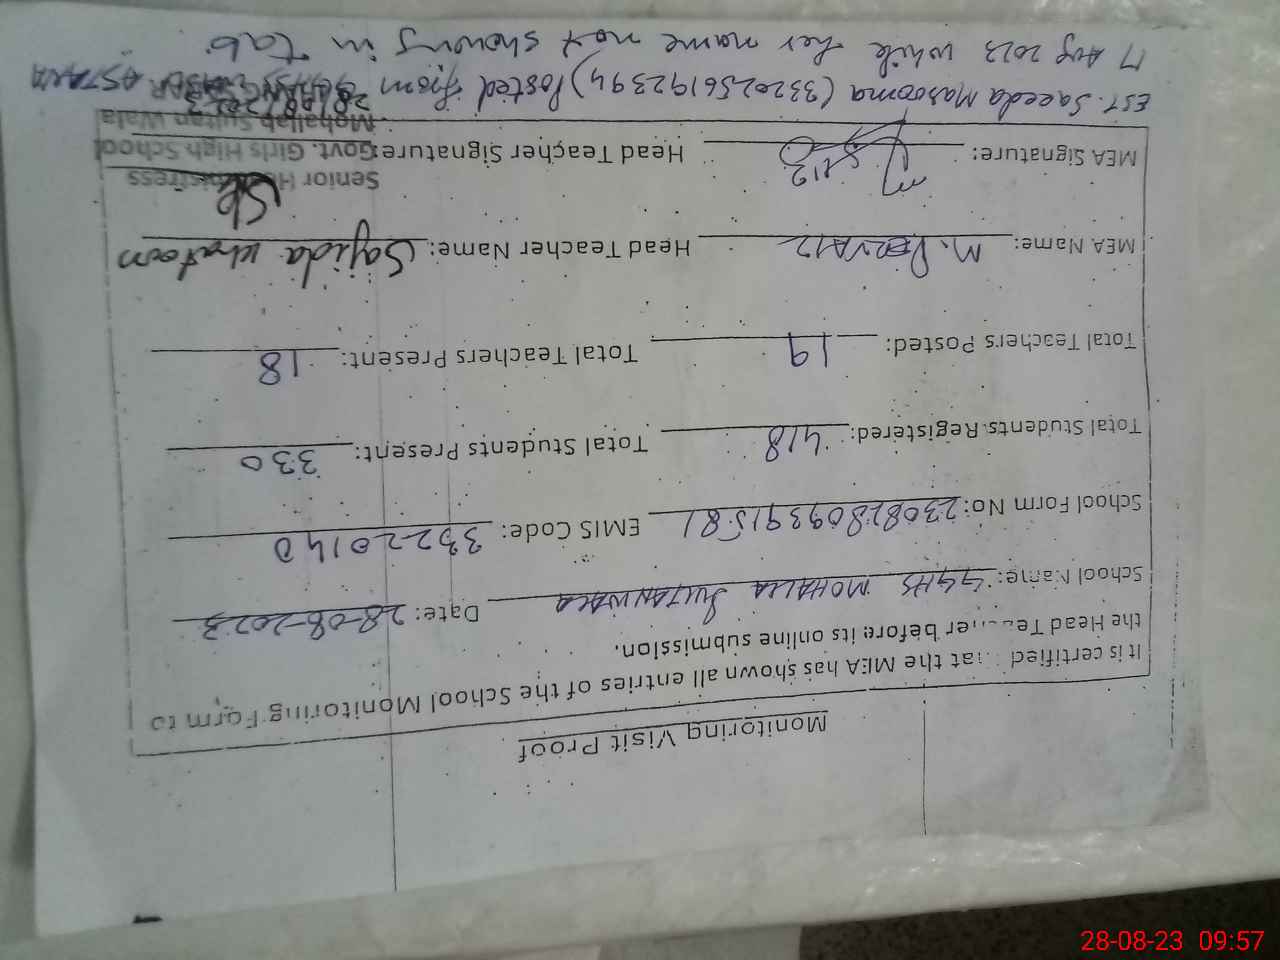 Monitoring Visit Proof
It is certified that the MEA has shown all entries of the School Monitoring Form to
the Head Teacher before its online submission.
School Name: GGHS MOHALLA SULTANWALA Date: 28-08-2023
School Form No: 23082809391581 EMIS Code: 33220140
Total Students Registered: 418 Total Students Present: 330
Total Teachers Posted: 19 Total Teachers Present: 18
MEA Name: M. PERVAIZ Head Teacher Name: Sajida Khatoon
MEA Signature: Head Teacher Signature:
Senior Headmistress
Govt. Girls High School
Mohallah Sultan Wala
28/08/2023
EST. Saeeda Masooma (3320256192394) Posted from
17 Aug 2023 while her name not showing in Tab
28-08-23 09:57